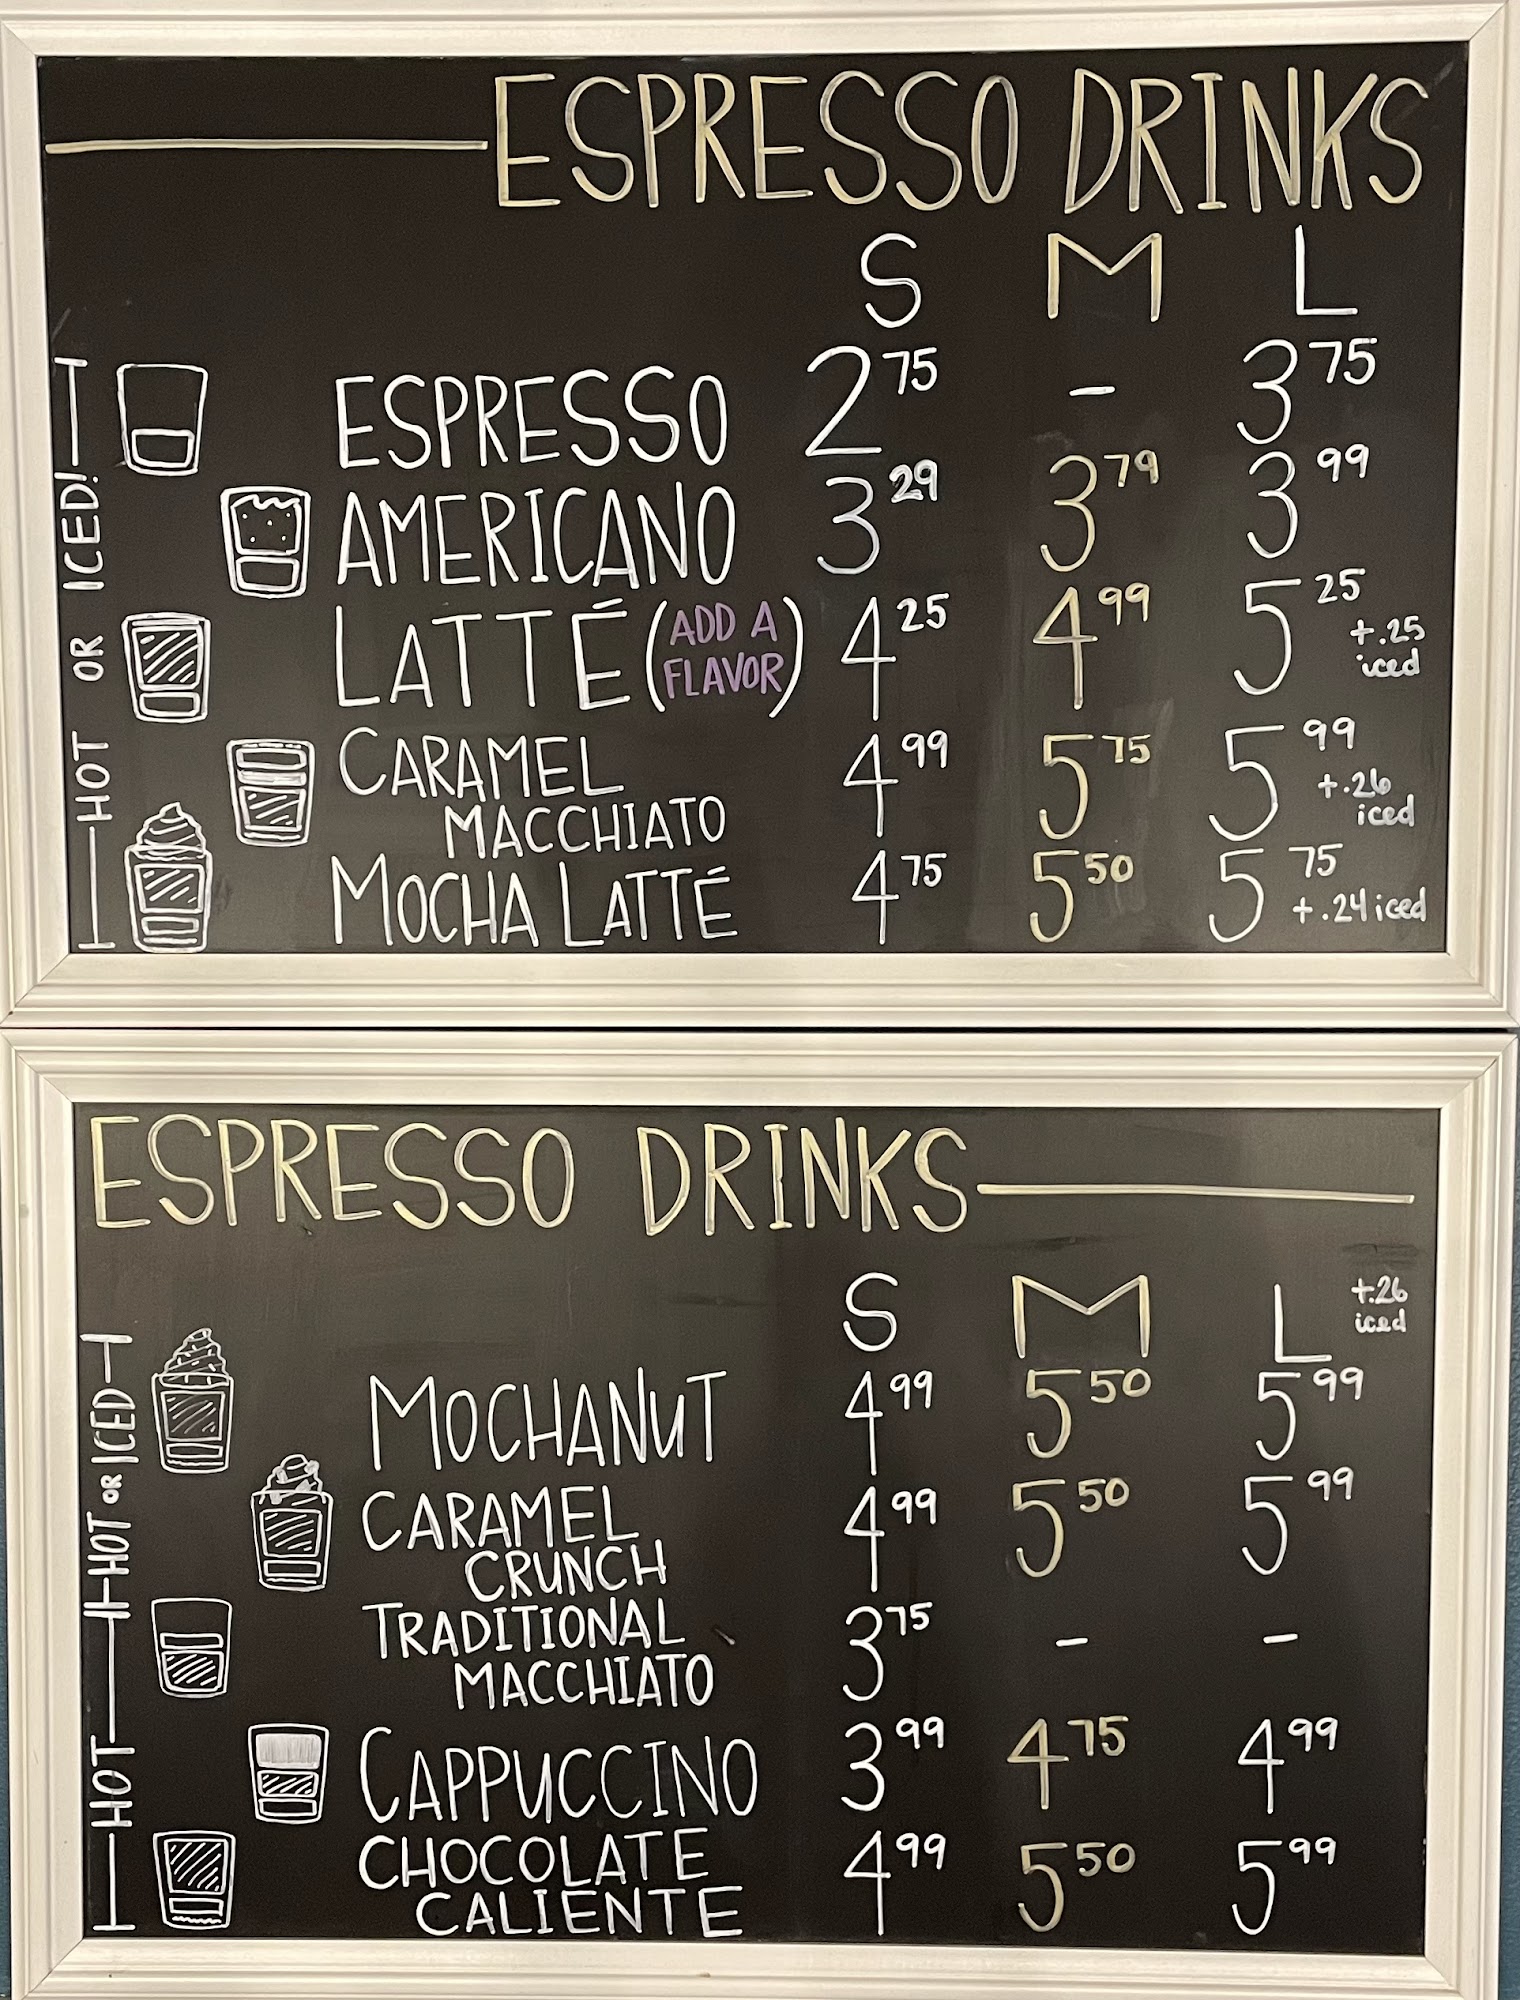 ESPRESSO DRINKS
S M L
ESPRESSO 2 75 - 3 75
AMERICANO 3 29 3 79 3 99
LATTÉ (ADD A FLAVOR) 4 25 4 99 5 25 +.25 iced
CARAMEL MACCHIATO 4 99 5 75 5 99 +.26 iced
MOCHA LATTÉ 4 75 5 50 5 75 +.24 iced
HOT OR ICED!
ESPRESSO DRINKS
S M L +.26 iced
MOCHANUT 4 99 5 50 5 99
CARAMEL CRUNCH 4 99 5 50 5 99
TRADITIONAL MACCHIATO 3 75 - -
CAPPUCCINO 3 99 4 75 4 99
CHOCOLATE CALIENTE 4 99 5 50 5 99
HOT OR ICED
HOT